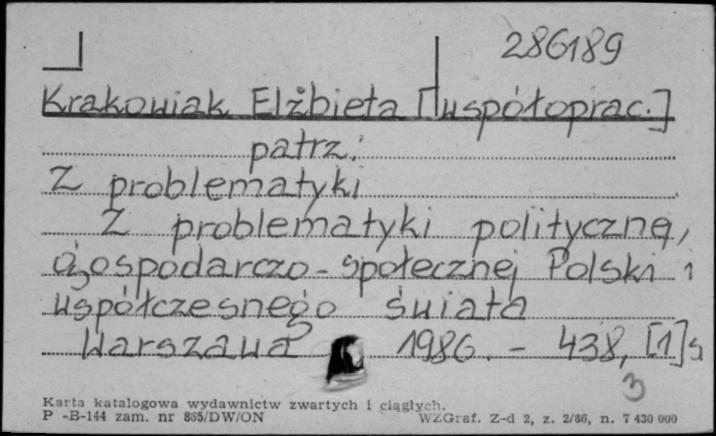 286189
Krakowiak Elżbieta [współoprac.]
patrz:
Z problematyki
Z problematyki polityczne,
gospodarczo-społecznej Polski i
współczesnego świata
Warszawa 1986. - 438, [1] s
3
Karta katalogowa wydawnictw zwartych i ciągłych.
P -B-144 zam. nr 865/DW/ON WZGraf. Z-d 2, z. 2/86, n. 7 430 000